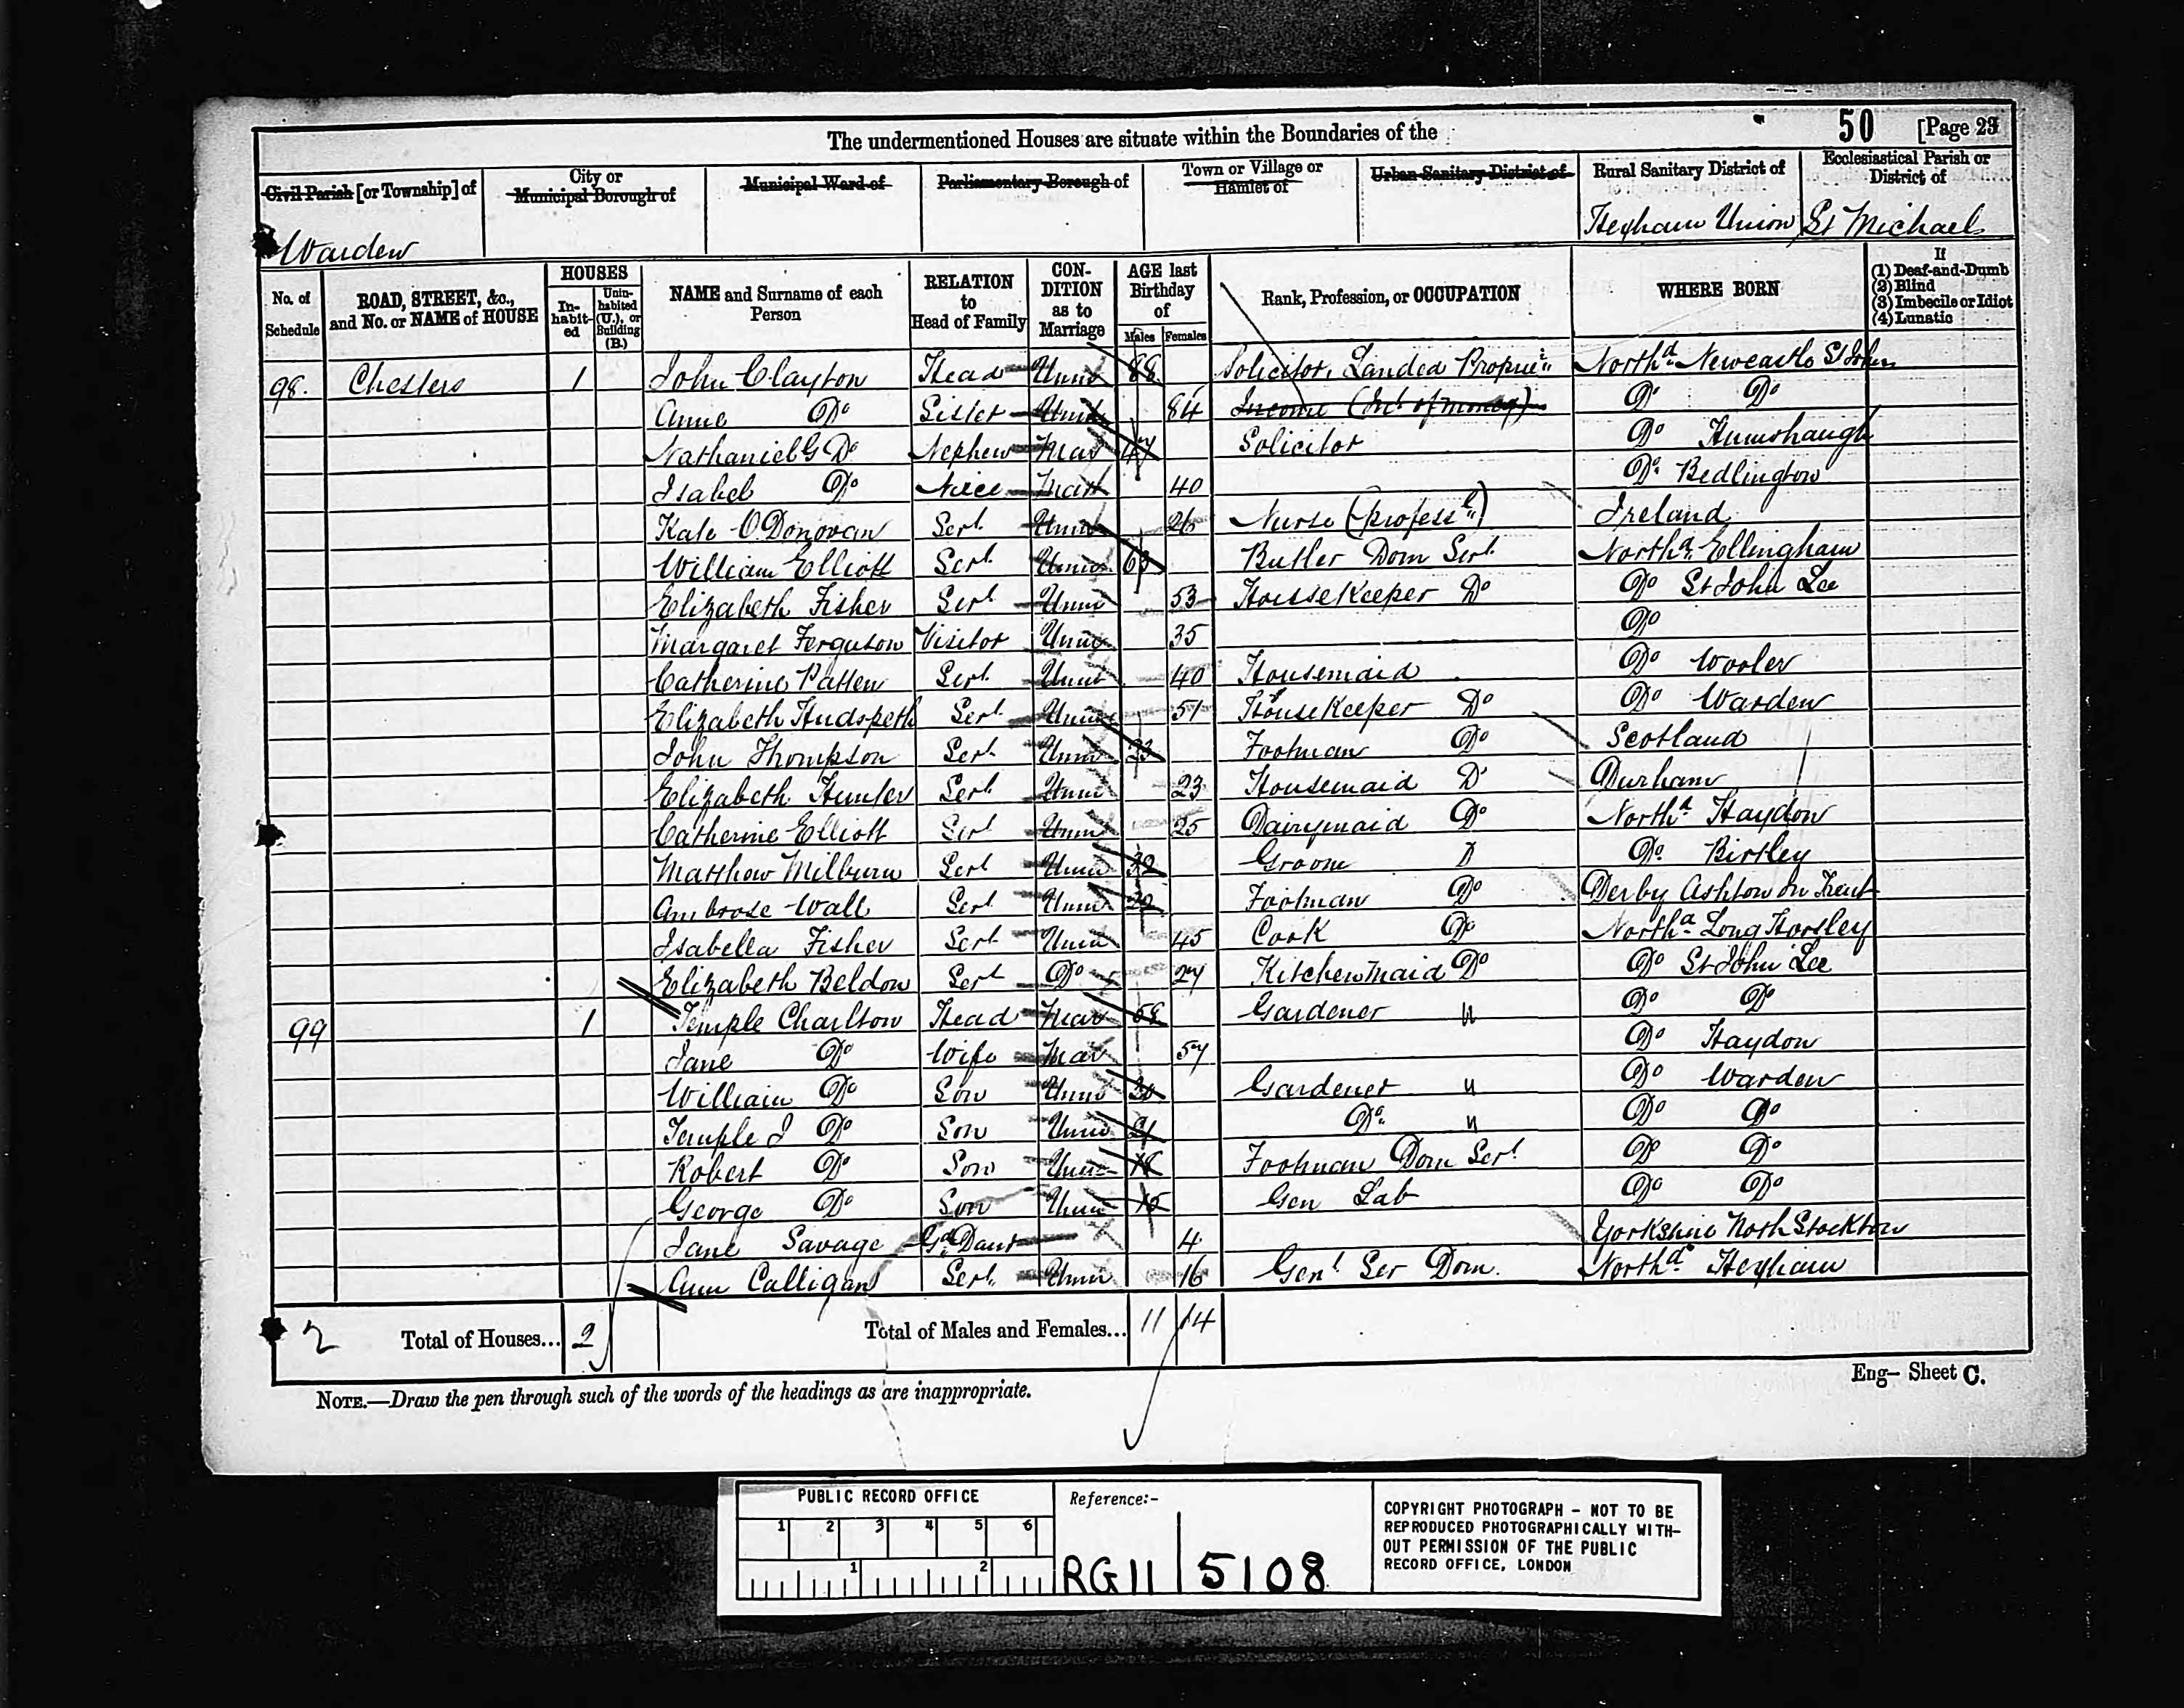 The undermentioned Houses are situate within the Boundaries of the
50 [Page 23
Civil Parish [or Township] of
City or Municipal Borough of
Municipal Ward of
Parliamentary Borough of
Town or Village or Hamlet of
Urban Sanitary District of
Rural Sanitary District of
Ecclesiastical Parish or District of
Warden
Hexham Union
St Michael
No. of Schedule
ROAD, STREET, &c., and No. or NAME of HOUSE
HOUSES
In-habit-ed
Unin-habited (U.), or Building (B.)
NAME and Surname of each Person
RELATION to Head of Family
CON-DITION as to Marriage
AGE last Birthday of
Males Females
Rank, Profession, or OCCUPATION
WHERE BORN
If
(1) Deaf-and-Dumb
(2) Blind
(3) Imbecile or Idiot
(4) Lunatic
98. Chesters 1 John Clayton Head Unm 88 Solicitor, Landed Proprie: North.d Newcastle St John
Anne Do Sister Unm 84 Income (Int of money) Do Do
Nathaniel G Do Nephew Mar 47 Solicitor Do Humshaugh
Isabel Do Niece Mar 40 Do Bedlington
Kate O'Donovan Sert. Unm 26 Nurse (profess.l) Ireland
William Elliott Sert. Unm 63 Butler Dom Sert. North.d Ellingham
Elizabeth Fisher Sert. Unm 53 HouseKeeper Do Do St John Lee
Margaret Ferguson Visitor Unm 35 Do
Catherine Patten Sert. Unm 40 Housemaid Do Wooler
Elizabeth Hudspeth Sert. Unm 51 HouseKeeper Do Do Warden
John Thompson Sert. Unm 23 Footman Do Scotland
Elizabeth Hunter Sert. Unm 23 Housemaid Do Durham
Catherine Elliott Sert Unm 25 Dairymaid Do North.d Haydon
Matthew Milburn Sert Unm 32 Groom D Do Birtley
Ambrose Wall Sert. Unm Footman Do Derby Ashton on Trent
Isabella Fisher Sert. Unm 45 Cook Do North.d Long Horsley
Elizabeth Beldon Sert Do 27 Kitchenmaid Do Do St John Lee
99 1 Temple Charlton Head Mar 58 Gardener Do Do
Jane Do Wife Mar 57 Do Haydon
William Do Son Unm Gardener " Do Warden
Temple J Do Son Unm 21 Do " Do Do
Robert Do Son Unm 18 Footman Dom Sert. Do Do
George Do Son Unm 15 Gen Lab Do Do
Jane Savage Gd Daur 4 Yorkshire North Stockton
Ann Calligan Sert. Unm 16 Genl Ser Dom. North.d Hexham
2 Total of Houses... 2 Total of Males and Females... 11 14
NOTE.—Draw the pen through such of the words of the headings as are inappropriate.
Eng— Sheet C.
PUBLIC RECORD OFFICE
1 2 3 4 5 6
1 2
Reference:-
RG 11 5108
COPYRIGHT PHOTOGRAPH – NOT TO BE
REPRODUCED PHOTOGRAPHICALLY WITH-
OUT PERMISSION OF THE PUBLIC
RECORD OFFICE, LONDON